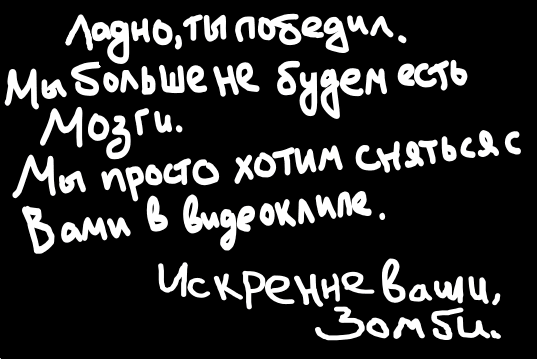 Ладно, ты победил.
Мы больше не будем есть
Мозги.
Мы просто хотим сняться с
Вами в видеоклипе.
Искренне ваши,
Зомби.